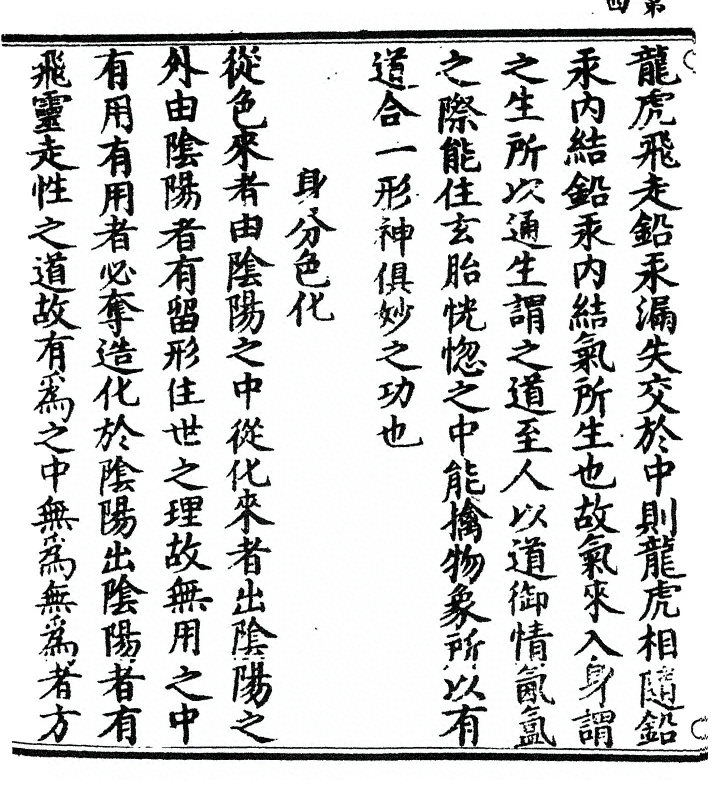 第
四
龍虎飛走鉛汞漏失交於中則龍虎相隨鉛
汞內結鉛汞內結氣所生也故氣來入身謂
之生所以通生謂之道至人以道御情氤氳
之際能住玄胎恍惚之中能擒物象所以有
道合一形神俱妙之功也
身分色化
從色來者由陰陽之中從化來者出陰陽之
外由陰陽者有留形住世之理故無用之中
有用有用者必奪造化於陰陽出陰陽者有
飛靈走性之道故有為之中無為無為者方